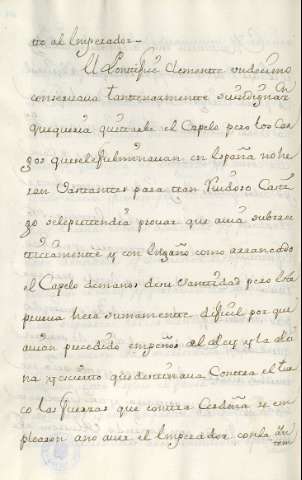 te al Imperador –
El Pontifice Clemente undecimo
conservava tan tenazmente su indignacn
que queria quitarle el Capelo pero los Car
gos que se le fulminavan en España no he
ran Vastantes para tan Ruidoso Casti
go se le pretendia provar que avia subrren
ticiamente y con engaño como arrancado
el Capelo de manos de su Santidad pero esta
prueva hera sumamente dificil por que
avian precedido empeños del Rey y la Rei
na y el supuesto que destinava Contra el tur
co las fuerzas que contra Cerdeña se em
plearon ano aver el Imperador con la